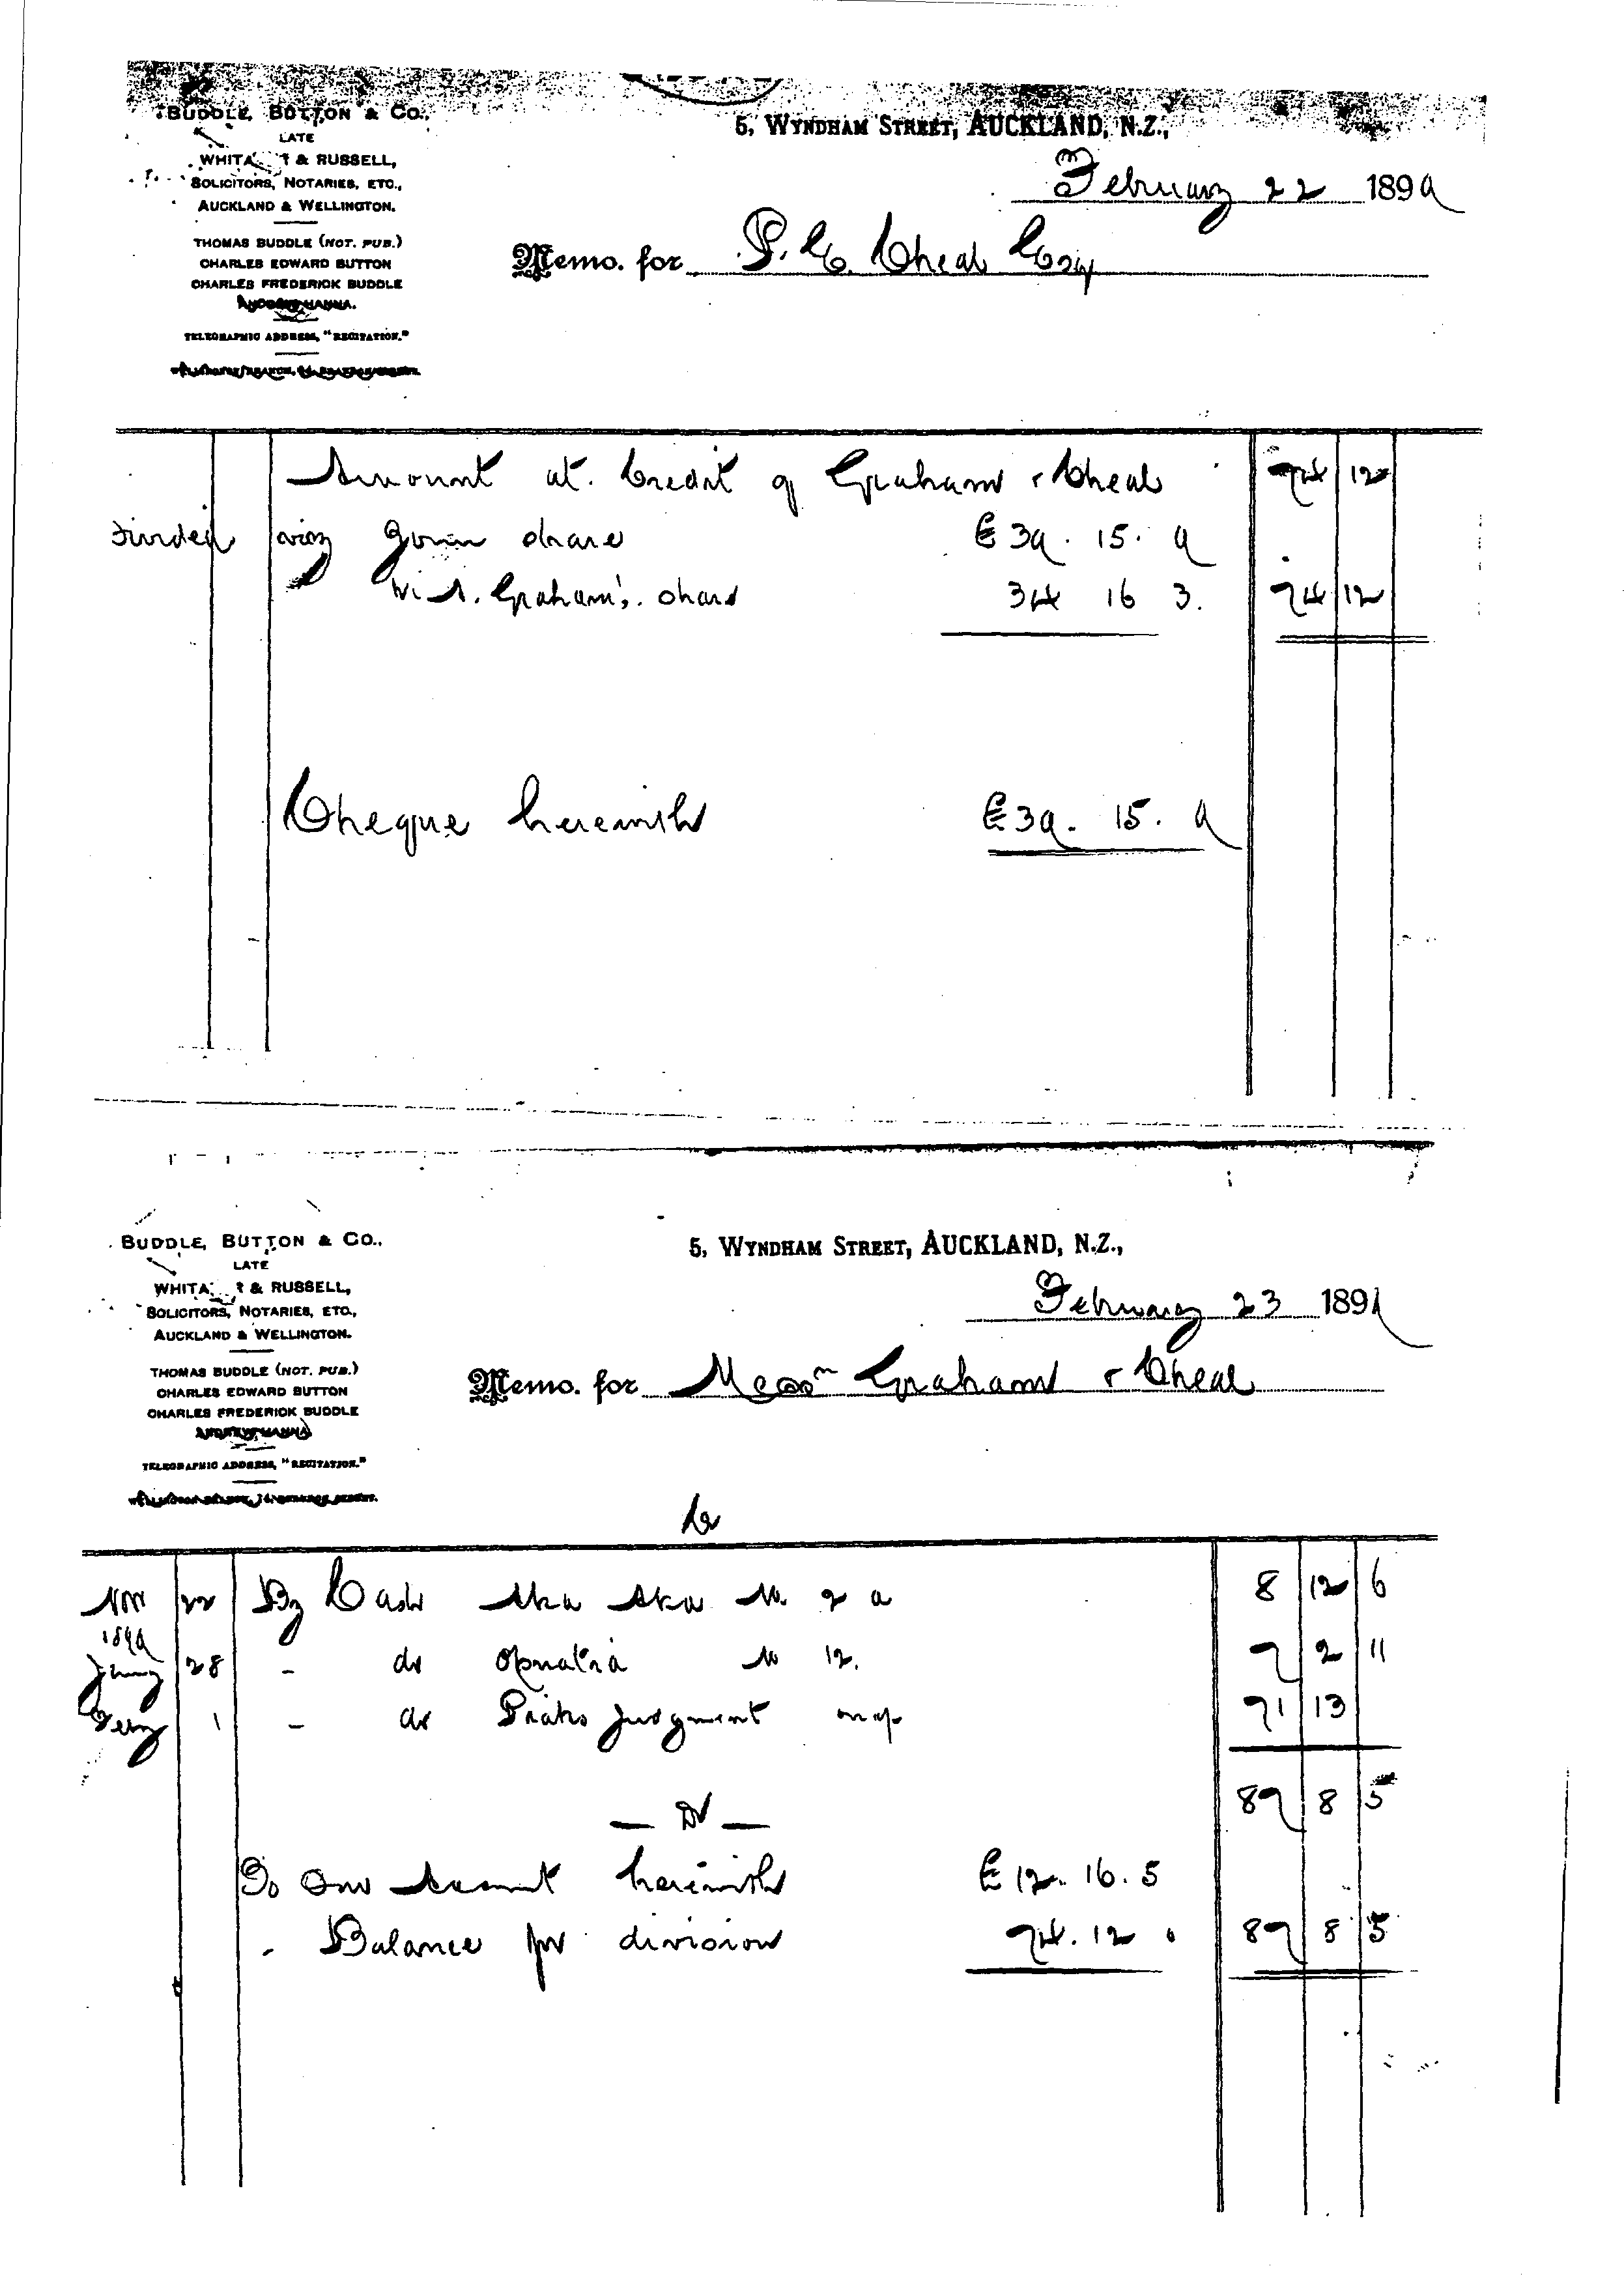 BUDDLE, BUTTON & CO.,
LATE
WHITA & RUSSELL,
SOLICITORS, NOTARIES, ETC.,
AUCKLAND & WELLINGTON.
THOMAS BUDDLE (NOT. PUB.)
CHARLES EDWARD BUTTON
CHARLES FREDERICK BUDDLE
ANDREW HANNA.
TELEGRAPHIC ADDRESS, "RECITATION."
5, WYNDHAM STREET, AUCKLAND, N.Z.,
February 22 1899
Memo. for P. E. Cheal Esq
Amount at Credit of Graham & Cheal 74 12
Divided viz Your share £39. 15. 9
W. A. Graham's share 34 16 3. 74 12
Cheque herewith £39. 15. 9
BUDDLE, BUTTON & CO.,
LATE
WHITA & RUSSELL,
SOLICITORS, NOTARIES, ETC.,
AUCKLAND & WELLINGTON.
THOMAS BUDDLE (NOT. PUB.)
CHARLES EDWARD BUTTON
CHARLES FREDERICK BUDDLE
ANDREW HANNA
TELEGRAPHIC ADDRESS, "RECITATION."
5, WYNDHAM STREET, AUCKLAND, N.Z.,
February 23 1899
Memo. for Messrs Graham & Cheal
Cr
Nov 22 By Cash Aka Aka No 2 a 8 12 6
1899
Jany 28 - do Opuatia No 12. 7 2 11
Feby 1 - do Piako Judgment map 71 13
87 8 5
— Dr —
To Our Account herewith £12. 16. 5
- Balance for division 74. 12 0 87 8 5